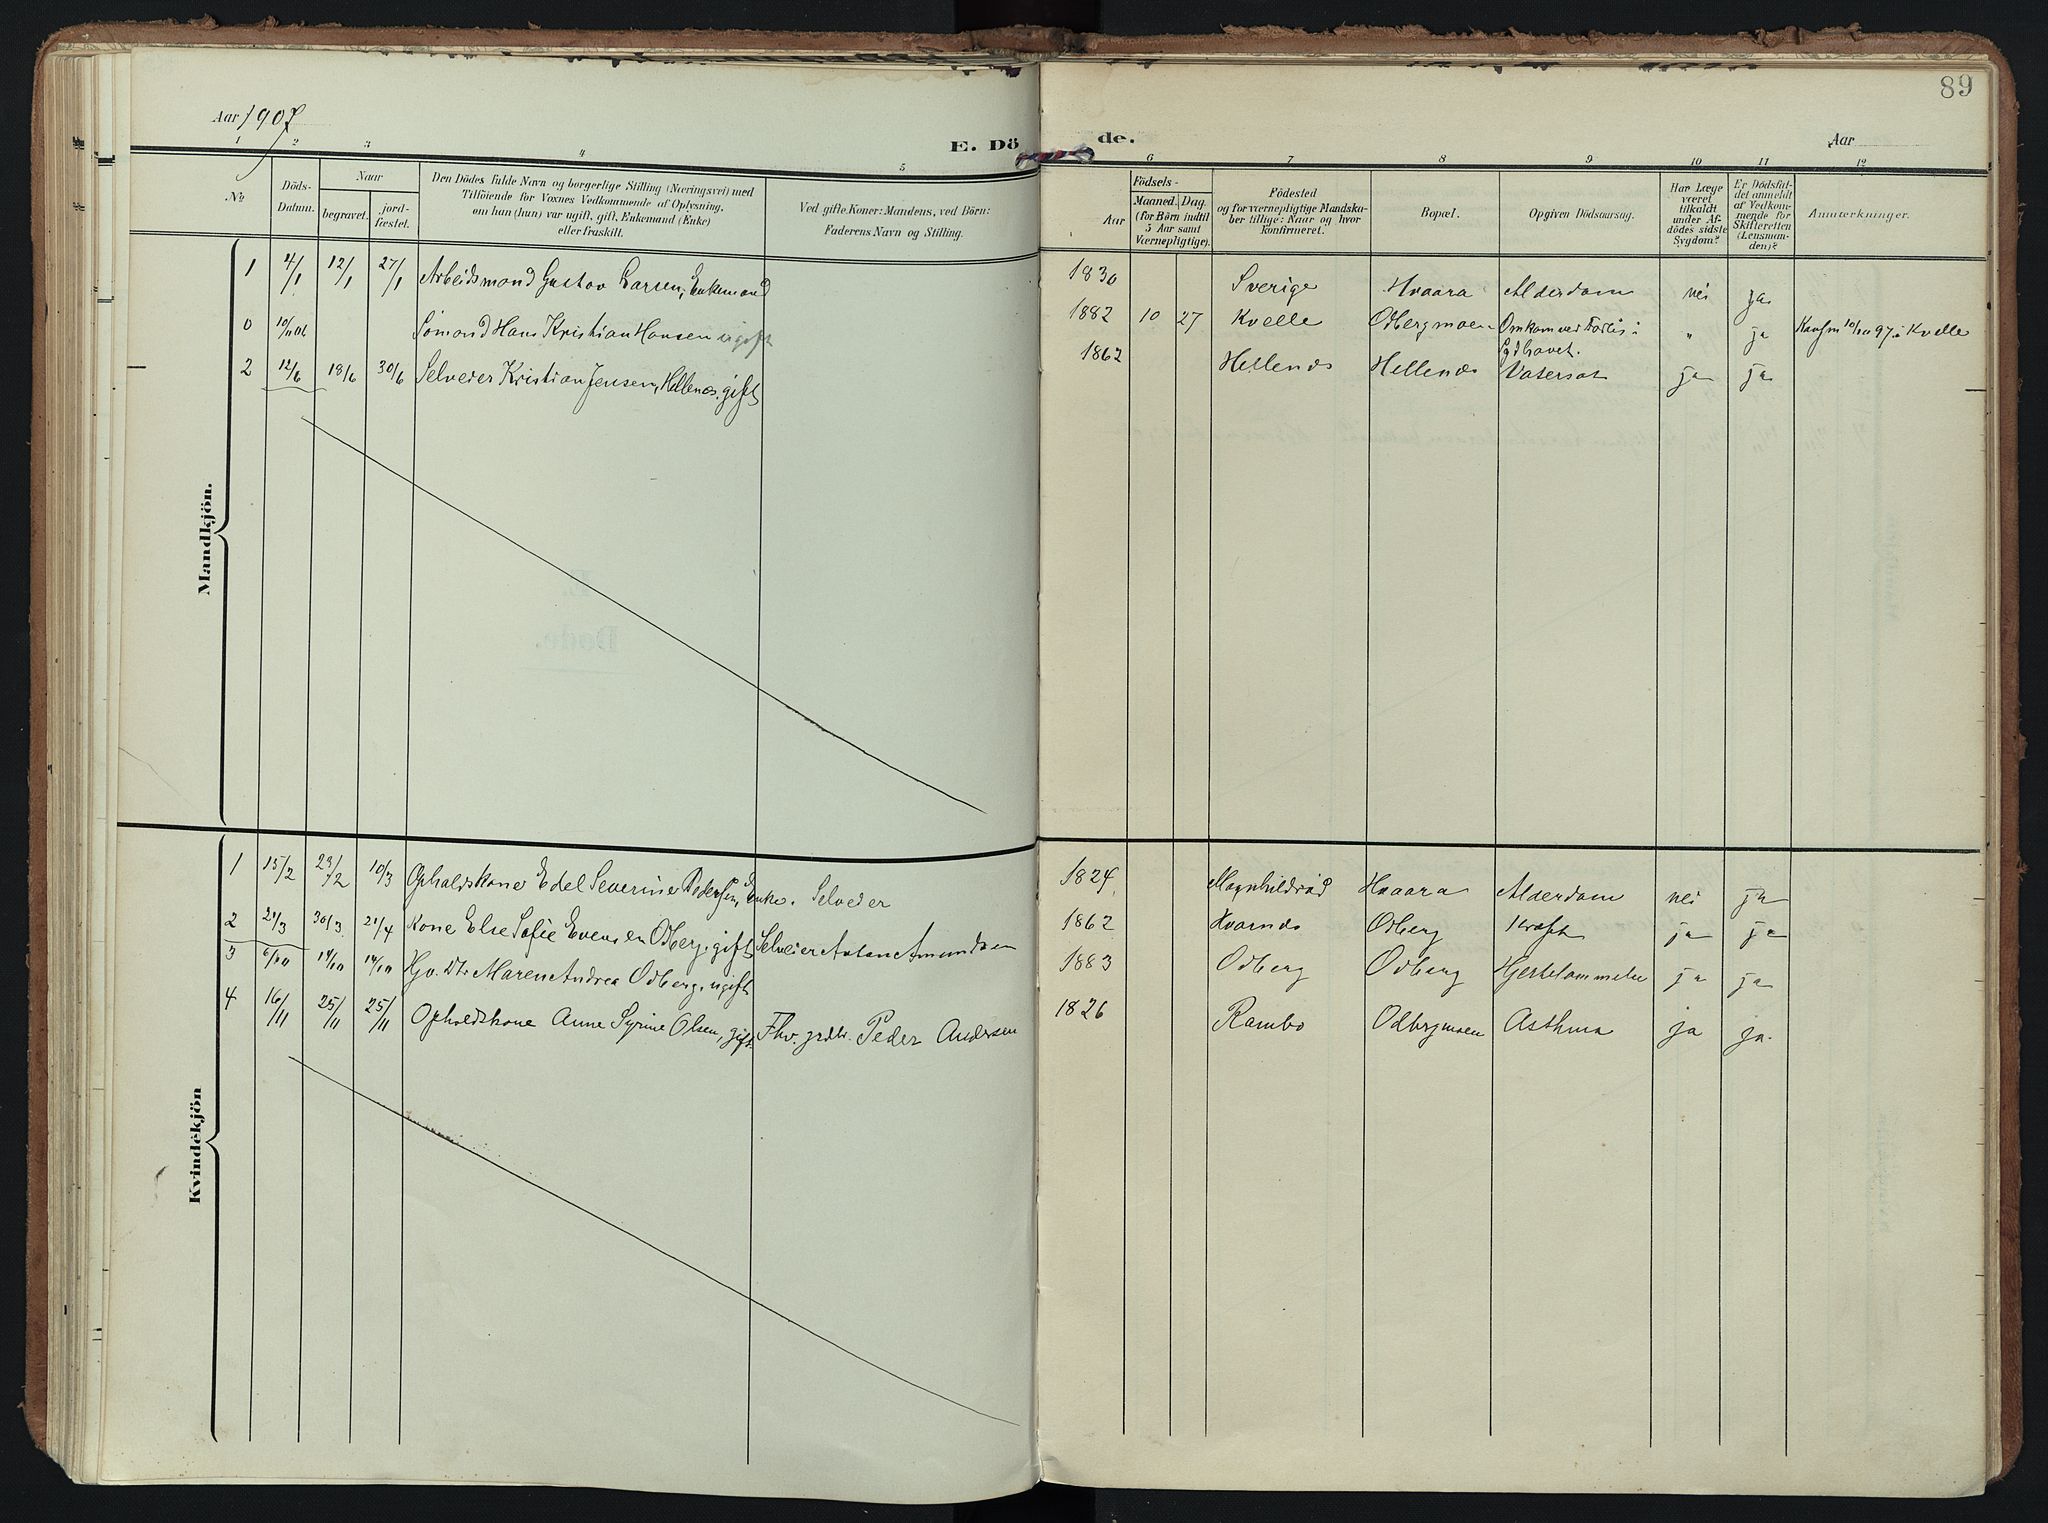 89
Aar 1907
E. Döde.
Aar
1 2 3 4 5 6 7 8 9 10 11 12
No
Döds-Datum.
Naar
begravet.
jord-fæstet.
Den Dödes fulde Navn og borgerlige Stilling (Næringsvei) med
Tilföiende for Voxnes Vedkommende af Oplysning,
om han (hun) var ugift, gift, Enkemand (Enke)
eller fraskilt.
Ved gifte Koner: Mandens, ved Börn:
Faderens Navn og Stilling.
Aar
Födsels-
Maaned. Dag.
(for Börn indtil
5 Aar samt
Værnepligtige).
Födested
og for værnepligtige Mandska-
ber tillige: Naar og hvor
konfirmeret.
Bopæl.
Opgiven Dödsaarsag.
Har Læge
været
tilkaldt
under Af-
dödes sidste
Sygdom?
Er Dödsfal-
det anmeldt
af Vedkom-
mende for
Skifteretten
(Lensman-
den)?
Anmærkninger.
Mandkjön.
1 4/1 12/1 27/1 Arbeidsmand Gustav Larsen, Enkemand 1830 Sverige Hvaara Alderdom nei ja
0 Sømand Hans Kristian Hansen ugift 1882 10 27 Kvelle Odbergmoen Omkom ved Forlis i Sydhavet. " ja Konfm 10/10 97 i Kvelle
2 12/6 18/6 30/6 Selveier Kristian Jensen, Hellenes. gift 1862 Hellenes Hellenes Vatersot ja ja
Kvindekjön
1 15/2 23/2 10/3 Opholdskone Edel Severine Pedersen, Enke. Selveier 1824 Magnhildrød Hvaara Alderdom nei ja
2 21/3 30/3 21/4 Kone Else Sofie Evensen Odberg, gift Selveier Anton Amundsen 1862 Kvarnes Odberg Kræft ja ja
3 6/10 14/10 14/10 Hjv. Dtr Maren Andrea Odberg, ugift 1883 Odberg Odberg Hjertelammelse ja ja
4 16/11 25/11 25/11 Opholdskone Anne Syrine Olsen, gift. Fhv. grdbr. Peder Andersen 1826 Rambo Odbergmoen Asthma ja ja.